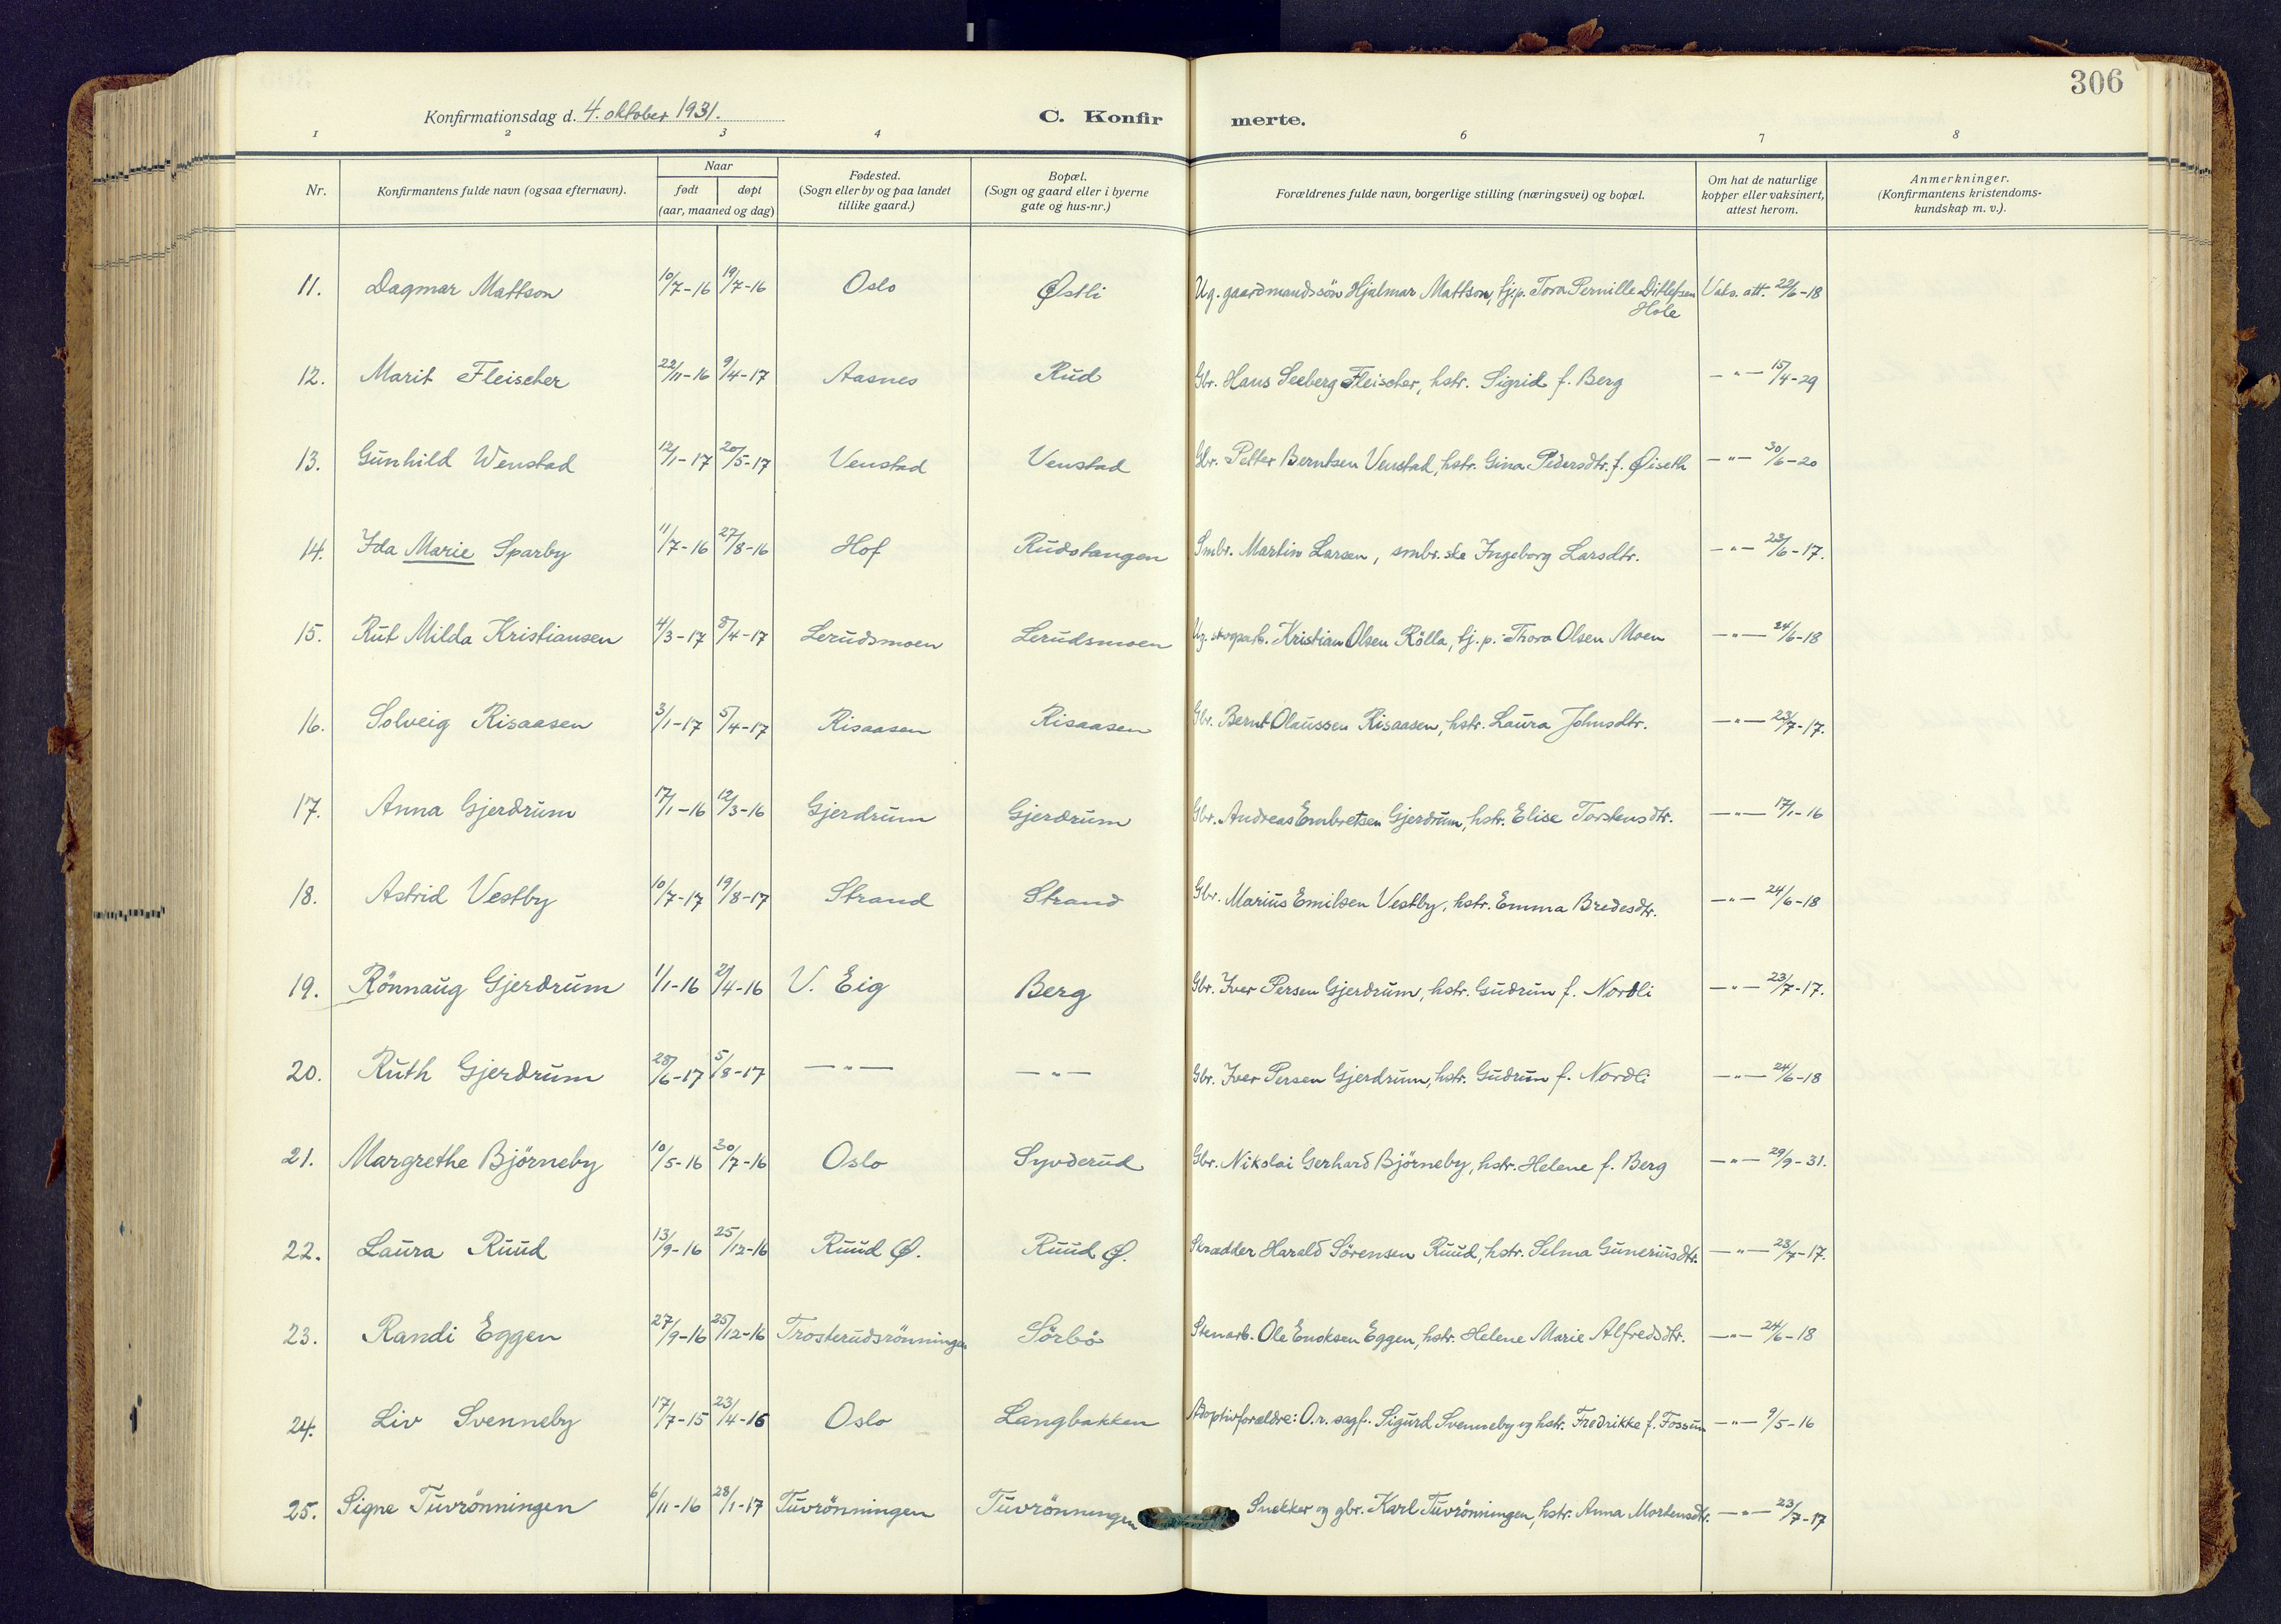 306
Konfirmationsdag d. 4. oktober 1931.
C. Konfir merte.
1 2 3 4 6 7 8
Nr. | Konfirmantens fulde navn (ogsaa efternavn). | Naar født døpt (aar, maaned og dag) | Fødested. (Sogn eller by og paa landet tillike gaard.) | Bopæl. (Sogn og gaard eller i byerne gate og hus-nr.) | Forældrenes fulde navn, borgerlige stilling (næringsvei) og bopæl. | Om hat de naturlige kopper eller vaksinert, attest herom. | Anmerkninger. (Konfirmantens kristendoms-kundskap m. v.).
11. Dagmar Mattson 10/7-16 19/7-16 Oslo Østli Ug. gaardmandssön Hjalmar Mattson, tjp. Tora Pernille Ditlefsen Hole Vaks. att. 22/6-18
12. Marit Fleischer 22/11-16 9/4-17 Aasnes Rud Gbr. Hans Seeberg Fleischer, hstr. Sigrid f. Berg —"— 15/4-29
13. Gunhild Wenstad 12/1-17 20/5-17 Venstad Venstad Gbr. Petter Berntsen Venstad, hstr. Gina Pedersdtr. f. Øiseth —"— 30/6-20
14. Ida Marie Sparby 11/7-16 27/8-16 Hof Rudstangen Smbr. Martin Larsen, smbr.ske Ingeborg Larsdtr. —"— 23/6-17.
15. Rut Milda Kristiansen 4/3-17 8/4-17 Lerudsmoen Lerudsmoen Ug. skogsarb. Kristian Olsen Rölla, tj.p. Thora Olsen Moen —"— 24/6-18
16. Solveig Risaasen 3/1-17 5/4-17 Risaasen Risaasen Gbr. Bernt Olaussen Risaasen, hstr. Laura Johnsdtr. —"— 23/7-17.
17. Anna Gjerdrum 17/1-16 12/3-16 Gjerdrum Gjerdrum Gbr. Andreas Embretsen Gjerdrum, hstr. Elise Torstensdtr. —"— 17/1-16
18. Astrid Vestby 10/7-17 19/8-17 Strand Strand Gbr. Marius Emilsen Vestby, hstr. Emma Bredesdtr. —"— 24/6-18
19. Rönnaug Gjerdrum 1/1-16 2/4-16 V. Eig Berg Gbr. Iver Persen Gjerdrum, hstr. Gudrun f. Nordli —"— 23/7-17.
20. Ruth Gjerdrum 28/6-17 5/8-17 —"— —"— Gbr. Iver Persen Gjerdrum, hstr. Gudrun f. Nordli —"— 24/6-18
21. Margrethe Björneby 10/5-16 30/7-16 Oslo Syvderud Gbr. Nikolai Gerhard Björneby, hstr. Helene f. Berg —"— 29/9-31.
22. Laura Ruud 13/9-16 25/12-16 Ruud Ø. Ruud Ø. Skrædder Harald Sörensen Ruud, hstr. Selma Guneriusdtr. —"— 23/7-17.
23. Randi Eggen 27/9-16 25/12-16 Trosterudsrönningen Sörbö Stenarb. Ole Enoksen Eggen, hstr. Helene Marie Alfredsdtr. —"— 24/6-18
24. Liv Svenneby 17/7-15 23/4-16 Oslo Langbakken Adoptivforældre: O.r. sagf. Sigurd Svenneby og hstr. Fredrikke f. Fossum —"— 9/5-16
25. Signe Tuvrönningen 6/11-16 28/1-17 Tuvrönningen Tuvrönningen Snekker og gbr. Karl Tuvrönningen, hstr. Anna Mortensdtr. —"— 23/7-17